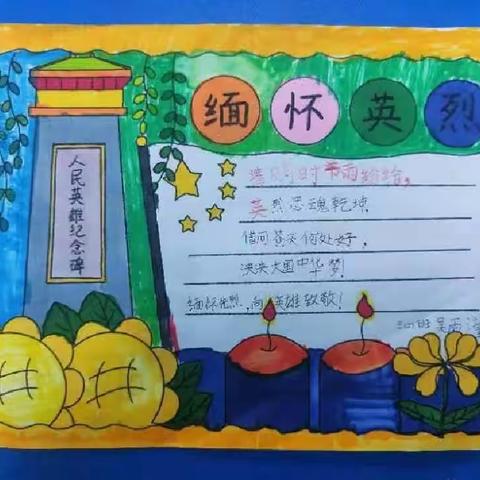 缅怀英烈
人民英雄纪念碑
清明时节雨纷纷,
英烈忠魂乾坤.
借问苍天何处好,
泱泱大国中华梦!
缅怀先烈,向英雄致敬!